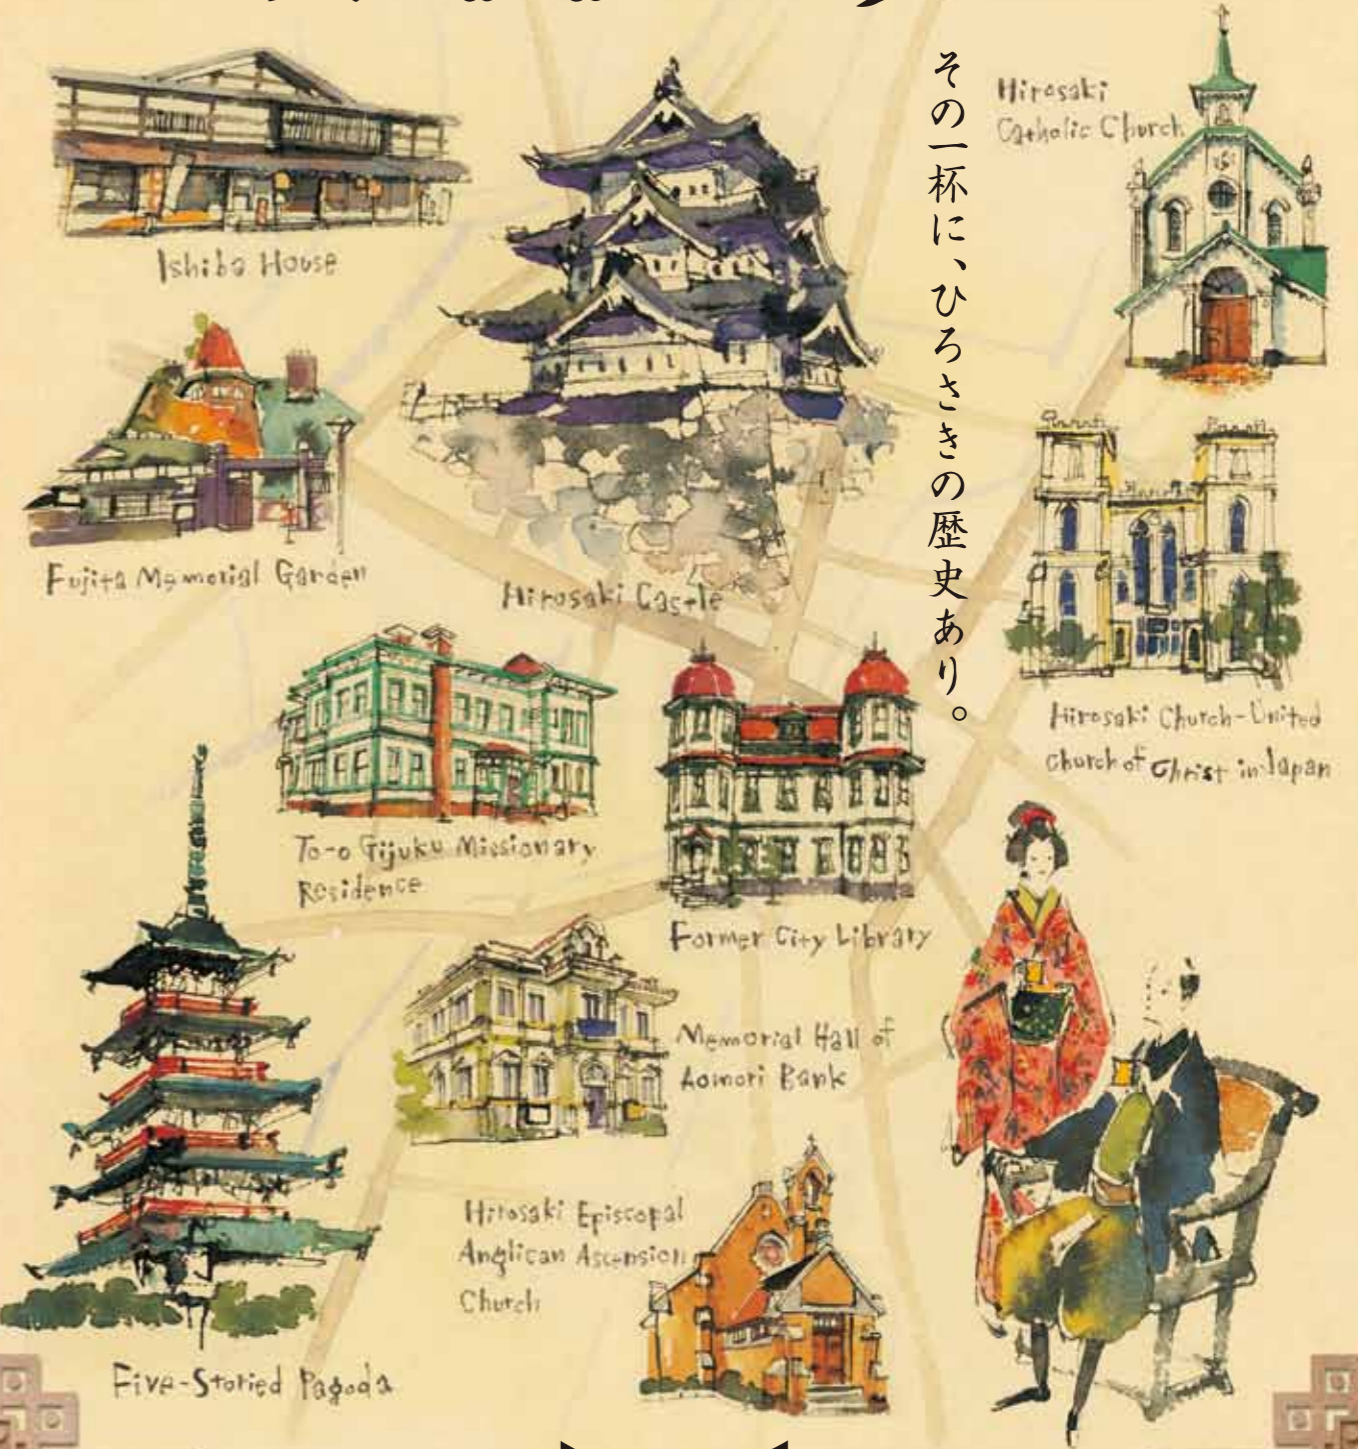 その一杯に、ひろさきの歴史あり。
Hirosaki
Catholic Church
Ishiba House
Fujita Memorial Garden
Hirosaki Castle
Hirosaki Church-United
Church of Christ in Japan
To-o Gijuku Missionary
Residence
Former City Library
Memorial Hall of
Aomori Bank
Hirosaki Episcopal
Anglican Ascension
Church
Five-Storied Pagoda